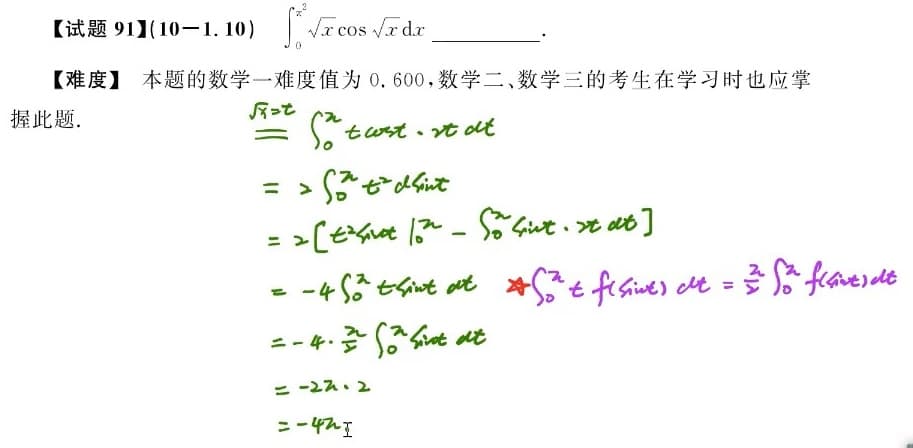 【试题 91】(10-1.10) ∫₀^{π²} √x cos √x dx ________.
【难度】 本题的数学一难度值为 0.600,数学二、数学三的考生在学习时也应掌
握此题.
√x=t
═ ∫₀^π t cost · 2t dt
= 2 ∫₀^π t² dsint
= 2 [ t² sint |₀^π - ∫₀^π sint · 2t dt ]
= -4 ∫₀^π t sint dt ☆ ∫₀^π t f(sint) dt = π/2 ∫₀^π f(sint) dt
= -4 · π/2 ∫₀^π sint dt
= -2π · 2
= -4π